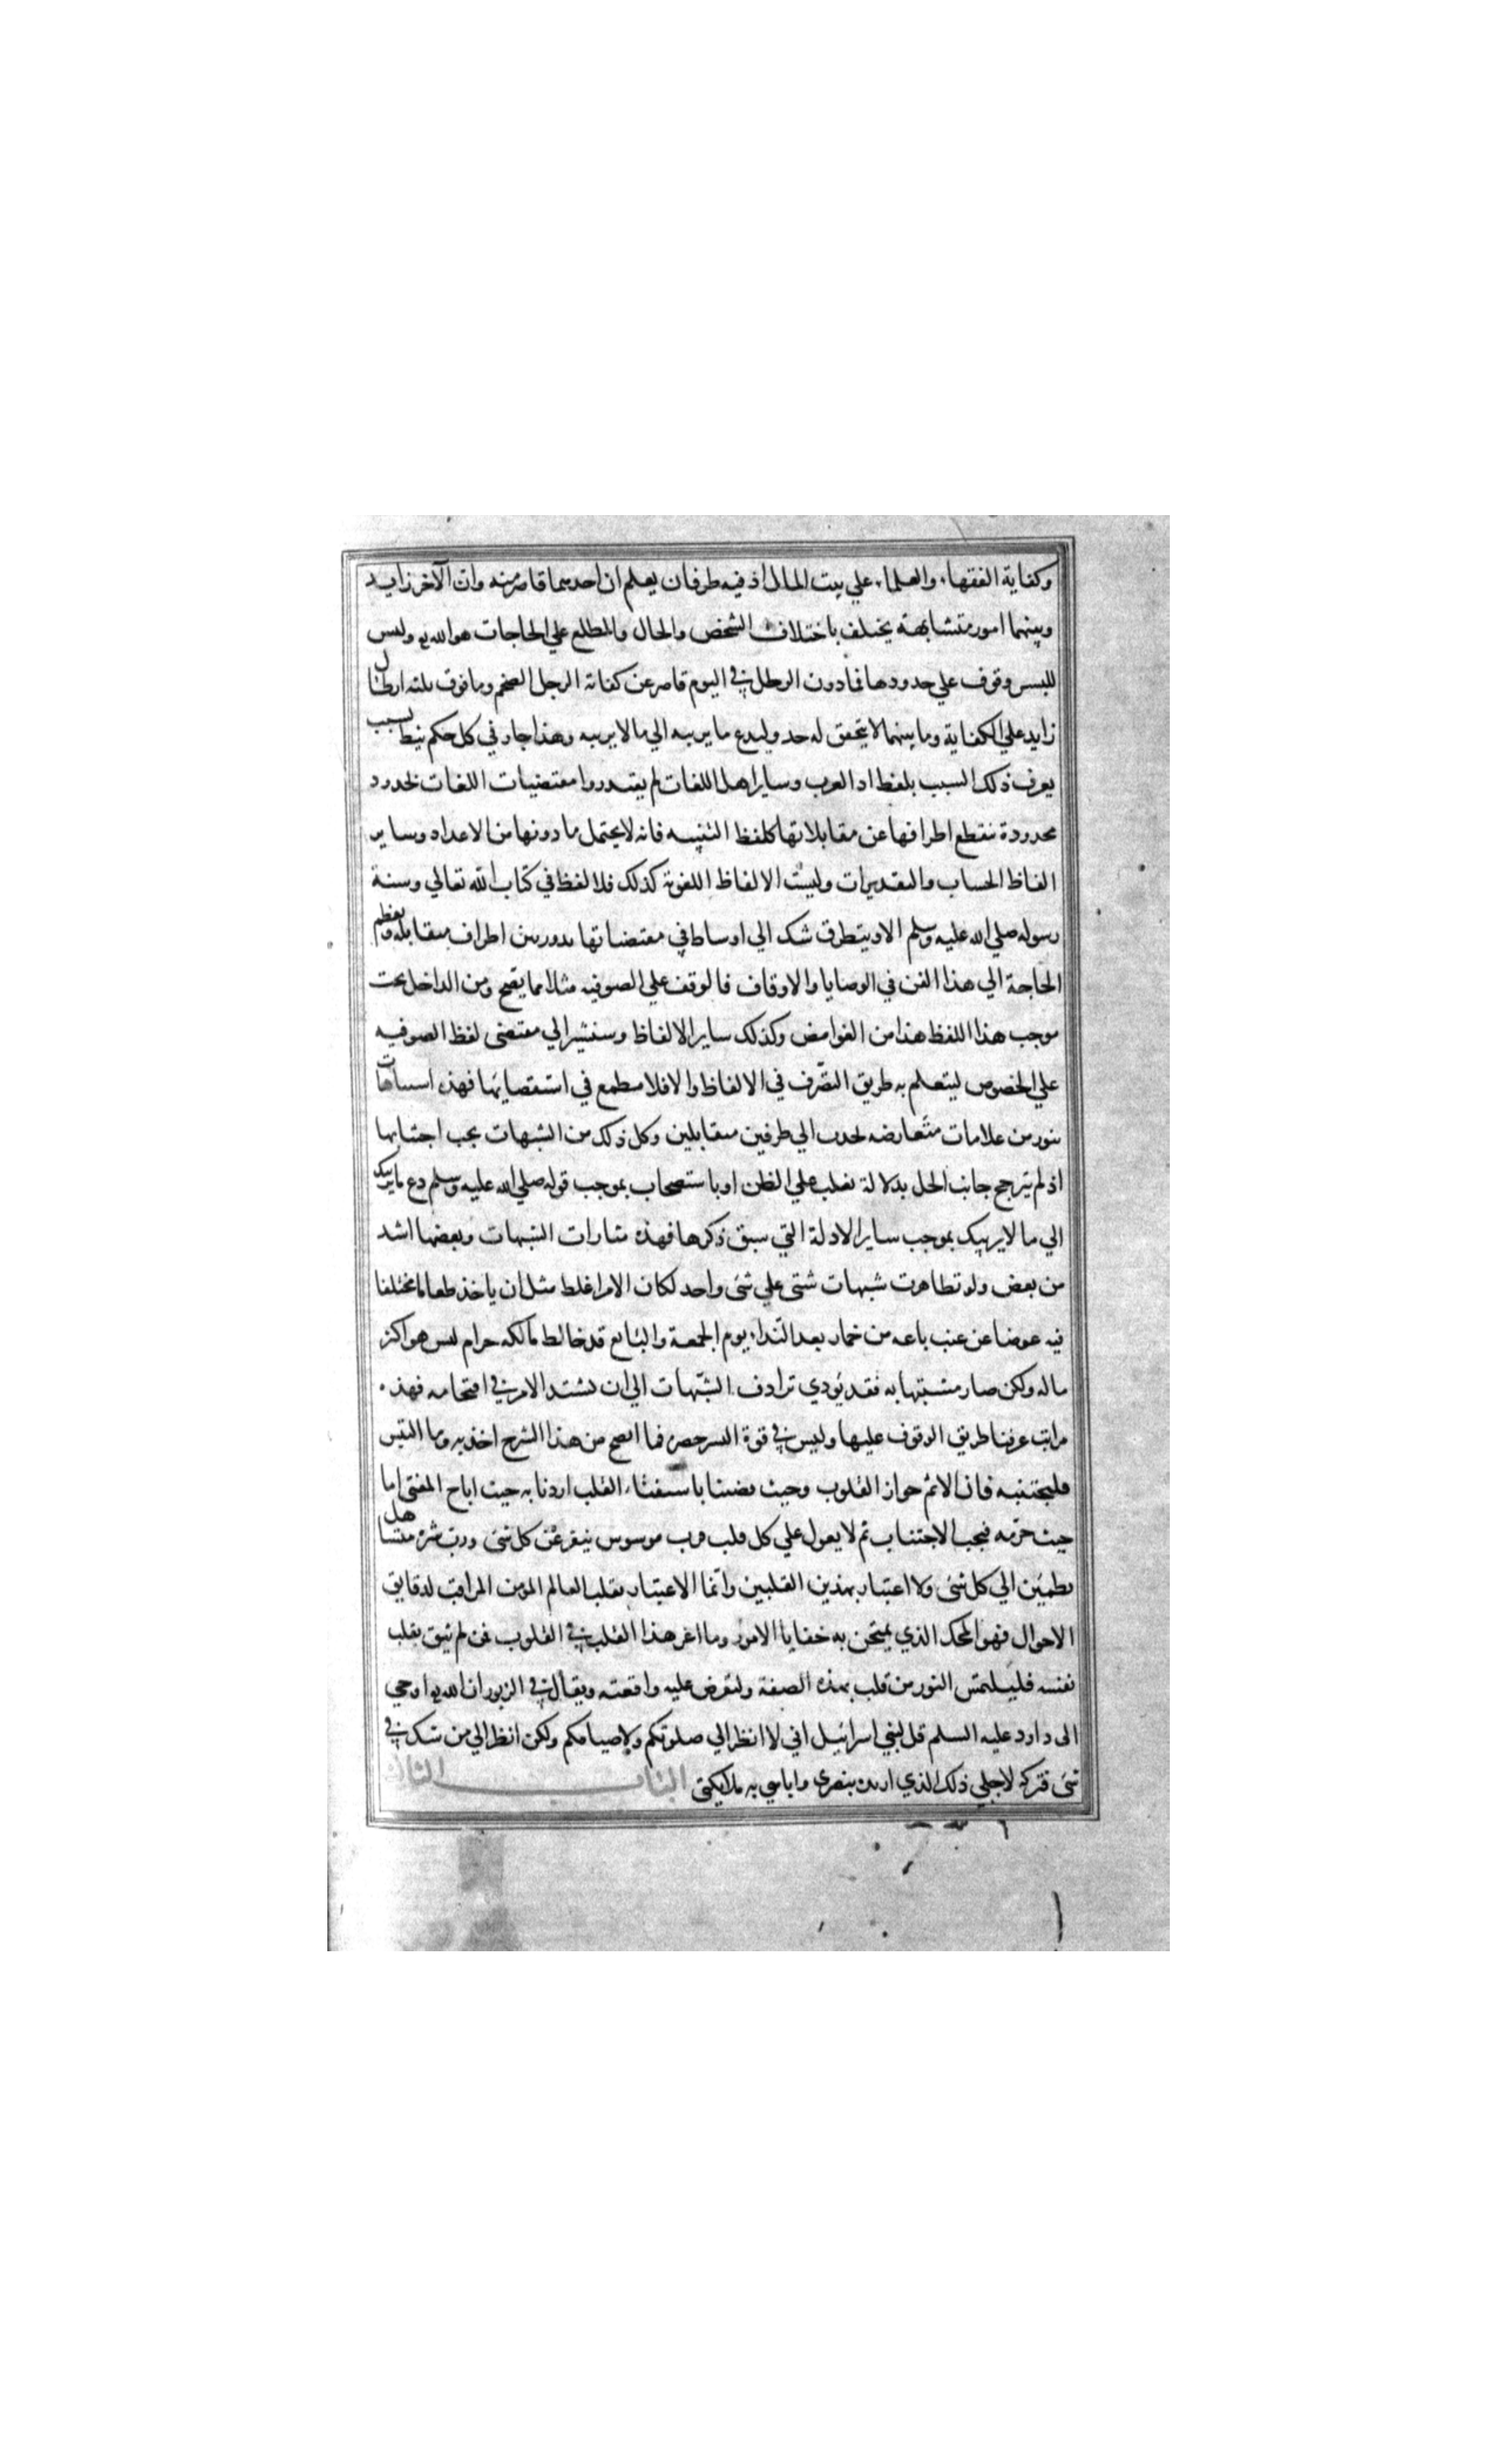 وكفاية الفقهاء والعلماء علي بيت المال اذ فيه طرفان يعلم ان احدهما قاصر منه وان الآخر زايد
وبينهما امور متشابهة يختلف باختلاف الشخص والحال والمطلع علي الحاجات هو الله تع وليس
للبشر وقوف علي حدودها فما دون الرطل في اليوم قاصر عن كفاية الرجل الضخم وما فوق ثلثه ارطال
زايد علي الكفاية وما بينهما لا يتحقق له حد وليدع ما يريبه الي ما لا يريبه وهذا جار في كل حكم نيط بسبب
يعرف ذلك السبب بلفظ اذ العرب وساير اهل اللغات لم يقدروا مقتضيات اللغات بحدود
محدودة تنقطع اطرافها عن مقابلاتها كلفظ الستة فانه لا يحتمل ما دونها من الاعداد وساير
الفاظ الحساب والتقديرات وليست الالفاظ اللغوية كذلك فلا لفظ في كتاب الله تعالي وسنة
رسوله صلي الله عليه وسلم الا ويتطرق شك الي اوساط في مقتضاتها يدور بين اطراف متقابله فيعظم
الحاجة الي هذا الفن في الوصايا والاوقاف فالوقف علي الصوفيه مثلا مما يصح ومن الداخل تحت
موجب هذا اللفظ هذا من الغوامض وكذلك ساير الالفاظ وسنشير الي مقتضى لفظ الصوفيه
علي الخصوص ليتعلم به طريق التصّرف في الالفاظ والا فلا مطمع في استقصايها فهذه اشتباهات
تثور من علامات متعارضه تجذب الي طرفين متقابلين وكل ذلك من الشبهات يجب اجتنابها
اذ لم يترجح جانب الحل بدلالة تغلب علي الظن او باستصحاب بموجب قوله صلي الله عليه وسلم دع ما يريبك
الي ما لا يريبك بموجب ساير الادلة التي سبق ذكرها فهذه مثارات الشبهات وبعضها اشد
من بعض ولو تظاهرت شبهات شتى علي شئ واحد لكان الامر اغلظ مثل ان ياخذ طعاما مختلفا
فيه عوضا عن عنب باعه من خمار بعد النداء يوم الجمعة والبايع قد خالط ماله حرام ليس هو اكثر
ماله ولكن صار مشتبها به فقد يؤدي ترادف الشبهات الي ان يشتد الامر في اقتحامه فهذه
مراتب عرفنا طريق الوقوف عليها وليس في قوة البشر حصره فما اتضح من هذا الشرح اخذ به وما التبس
فليجتنبه فان الاثم حواز القلوب وحيث قضينا باستفتاء القلب اردنا به حيث اباح المفتي اما
حيث حرّمه فيجب الاجتناب ثم لا يعول علي كل قلب فرب موسوس ينفر عن كل شئ ورب شره متساهل
يطمئن الي كل شئ ولا اعتبار بهذين القلبين وانما الاعتبار بقلب العالم المؤمن المراقب لدقايق
الاحوال فهو المحك الذي يمتحن به خفايا الامور وما اعز هذا القلب في القلوب فمن لم يثق بقلب
نفسه فليلتمس النور من قلب بهذه الصفة وليعرض عليه واقعته ويقال في الزبور ان الله تع اوحي
الى داود عليه السلم قل لبني اسرائيل اني لا انظر الي صلوتكم ولا صيامكم ولكن انظر الي من شك في
شئ فتركه لاجلي ذلك الذي اريده بنصري واباهي به ملائكتي البــاب الثالث